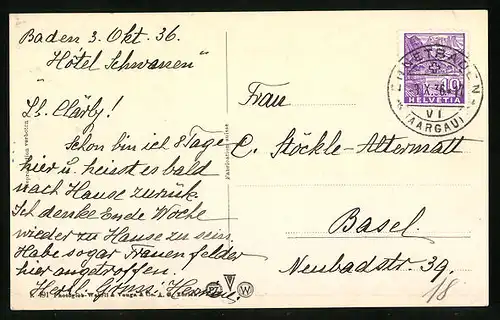 Baden 3. Okt. 36.
"Hôtel Schwanen"
Lb. Clärly!
Schon bin ich 8 Tage
hier u. heisst es bald
nach Hause zurück.
Ich denke Ende Woche
wieder zu Hause zu sein.
Habe sogar Frauenfelder
hier angetroffen.
Herzl. Gruss: Herm.
Reproduktion verboten
Fabrication suisse
Photoglob-Wehrli & Vouga & Co. A. G. Zürich
PZ V W
Frau
C. Stöckle-Altermatt
Basel.
Neubadstr. 39.
18
10
HELVETIA
ENNETBADEN
X. 36
VI
(AARGAU)